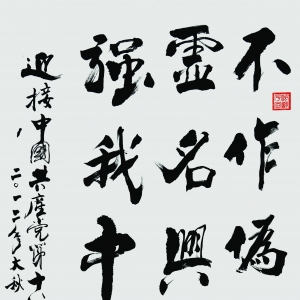 不作偽
靈名興
强我中
迎接中國共產黨第十八
二〇一二年大秋